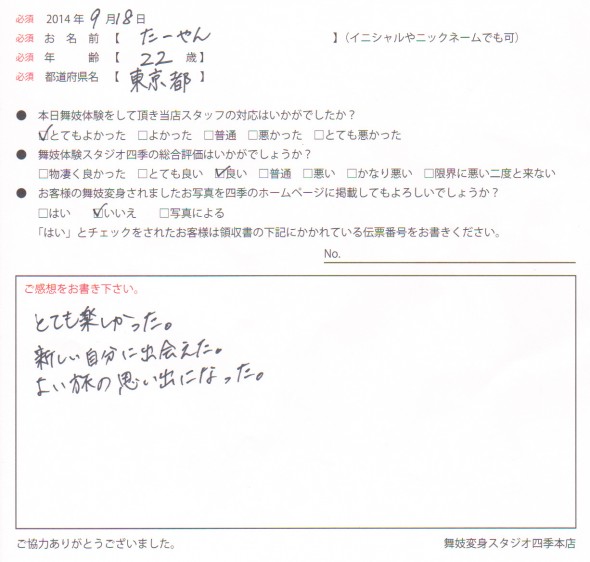 必須 2014年 9月18日
必須 お名前【 たーやん 】(イニシャルやニックネームでも可)
必須 年齢【 22 歳】
必須 都道府県名【 東京都
● 本日舞妓体験をして頂き当店スタッフの対応はいかがでしたか?
☑とてもよかった □よかった □普通 □悪かった □とても悪かった
● 舞妓体験スタジオ四季の総合評価はいかがでしょうか?
□物凄く良かった □とても良い ☑良い □普通 □悪い □かなり悪い □限界に悪い二度と来ない
● お客様の舞妓変身されましたお写真を四季のホームページに掲載してもよろしいでしょうか?
□はい ☑いいえ □写真による
「はい」とチェックをされたお客様は領収書の下記にかかれている伝票番号をお書きください。
No.
ご感想をお書き下さい。
とても楽しかった。
新しい自分に出会えた。
よい旅の思い出になった。
ご協力ありがとうございました。 舞妓変身スタジオ四季本店